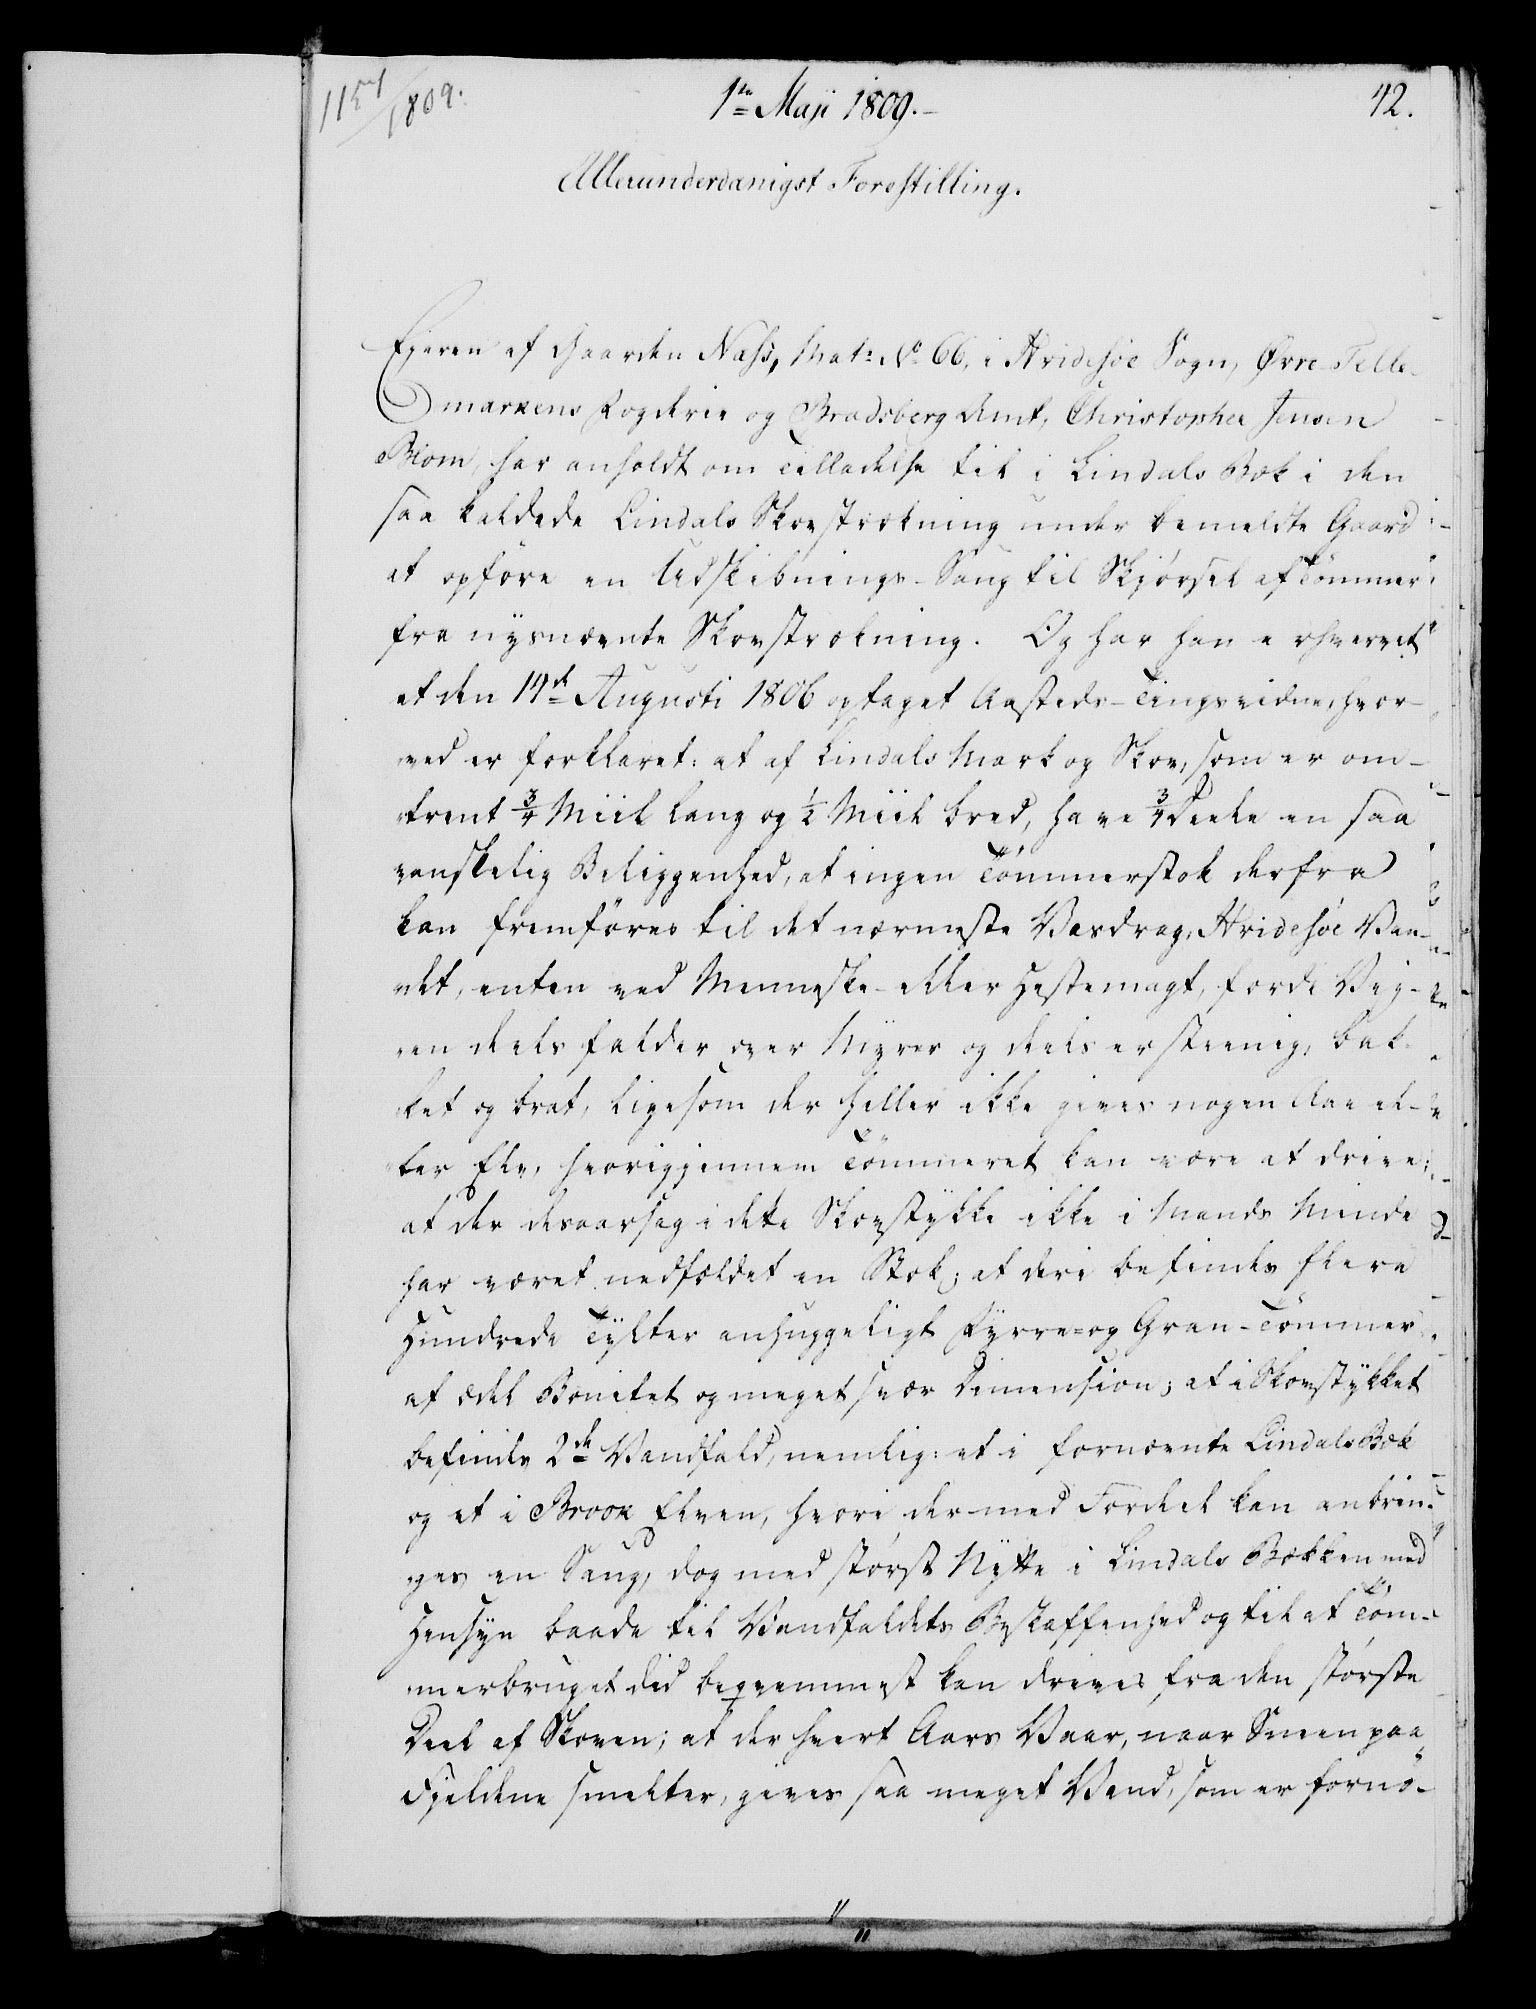 1151/1809.
1te Maji 1809.-
42.
Allerunderdanigst Forestilling.
Ejeren af Gaarden Næss, Matr. No 66, i Hvidesøe Sogn, Øvre-Telle-
markens Fogderie og Bradsberg Amt, Christopher Jensen
Biom, har anholdt om Tilladelse til i Lindals Bæk i den
saa kaldede Lindals Skovstrækning under bemeldte Gaard
at opföre en Udskibnings-Saug til Skjörsel af Tömmer
fra nysnævnte Skovstrækning. Og har han erhvervet
et den 14de Augusti 1806 optaget Aasteds-Tingsvidne, hvor-
ved er forklaret: at af Lindals Mark og Skov, som er om-
trent 3/4 Miil lang og 1/2 Miil bred, have 3/4 Deele en saa
vanskelig Beliggenhed, at ingen Tömmerstok derfra
kan fremföres til det nærmeste Vasdrag, Hvidesöe Van-
det, enten ved Menneske- eller Hestemagt, fordi Vej-
en deels falder over Myrer og deels er steenig, bak-
ket og brat, ligesom der heller ikke gives nogen Aae el-
ler Elv, hvorigjennem Tömmeret kan være at drive;
at der desaarsag i dette Skovstykke ikke i Mands Minde
har været nedfældet en Stok; at deri befindes flere
Hundrede Tylter anhuggeligt Fyrre- og Gran-Tömmer
af ædel Bonitet og meget svær Dimension; at i Skovstykket
befindes 2de Vandfald, nemlig: et i fornævnte Lindals Bæk
og et i Brook Elven, hvori der med Fordeel kan anbrin-
ges en Saug, dog med störst Nytte i Lindals Bækken med
Hensyn baade til Vandfaldets Beskaffenhed og til at Töm-
merbruget did beqvemmest kan drives fra den störste
Deel af Skoven; at der hvert Aars Vaar, naar Sneen paa
Fjeldene smelter, gives saa meget Vand, som er fornö-